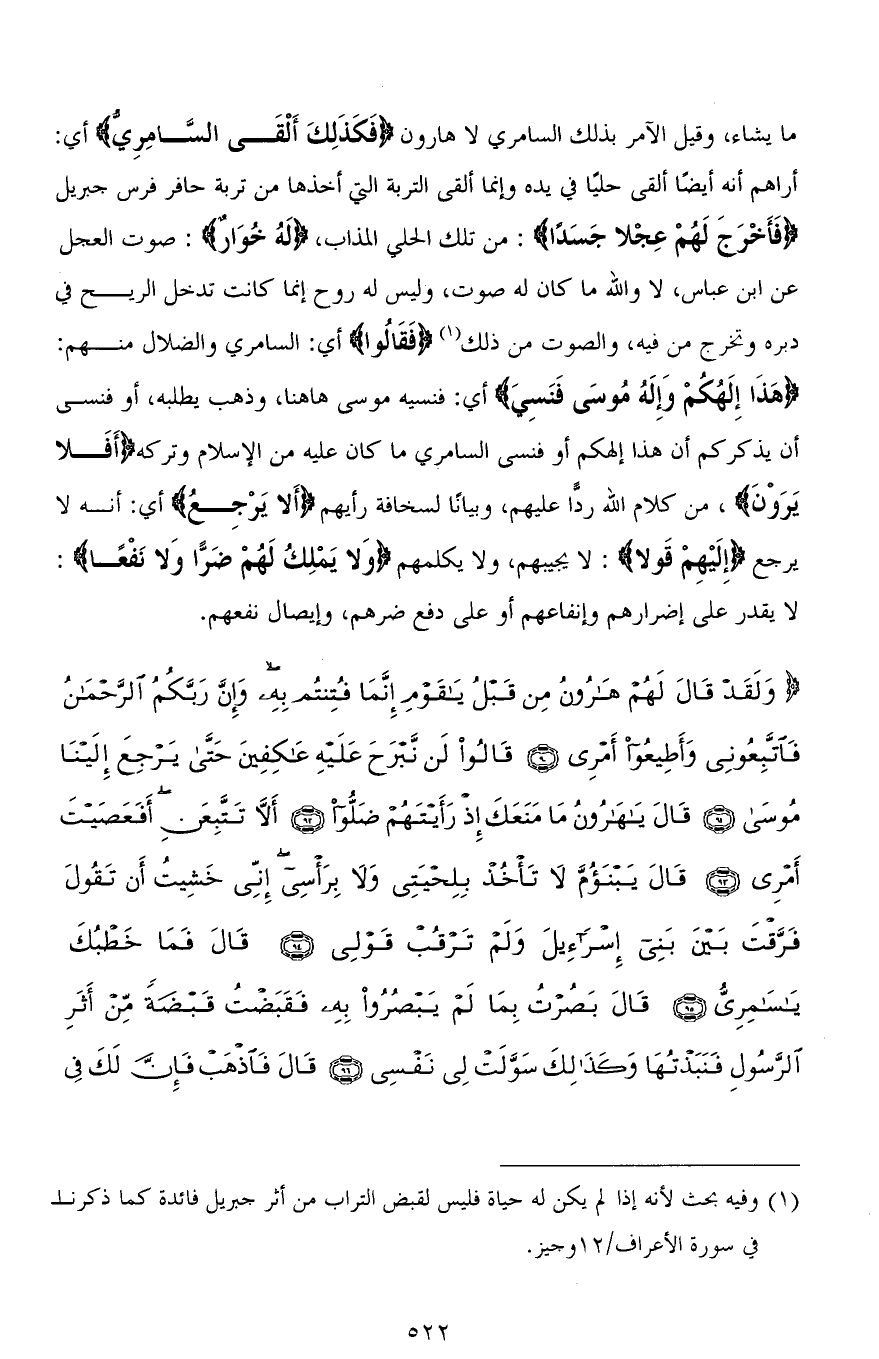 ما يشاء، وقيل الآمر بذلك السامري لا هارون ﴿فَكَذَلِكَ أَلْقَى السَّامِرِيُّ﴾ أي:
أراهم أنه أيضًا ألقى حليًا في يده وإنما ألقى التربة التي أخذها من تربة حافر فرس جبريل
﴿فَأَخْرَجَ لَهُمْ عِجْلا جَسَدًا﴾ : من تلك الحلي المذاب، ﴿لَهُ خُوَارٌ﴾ : صوت العجل
عن ابن عباس، لا والله ما كان له صوت، وليس له روح إنما كانت تدخل الريح في
دبره وتخرج من فيه، والصوت من ذلك(١) ﴿فَقَالُوا﴾ أي: السامري والضلال منهم:
﴿هَذَا إِلَهُكُمْ وَإِلَهُ مُوسَى فَنَسِيَ﴾ أي: فنسيه موسى هاهنا، وذهب يطلبه، أو فنسى
أن يذكركم أن هذا إلهكم أو فنسى السامري ما كان عليه من الإسلام وتركه ﴿أَفَلا
يَرَوْنَ﴾ ، من كلام الله ردًّا عليهم، وبيانًا لسخافة رأيهم ﴿أَلا يَرْجِعُ﴾ أي: أنه لا
يرجع ﴿إِلَيْهِمْ قَولا﴾ : لا يجيبهم، ولا يكلمهم ﴿وَلا يَمْلِكُ لَهُمْ ضَرًّا وَلا نَفْعًا﴾ :
لا يقدر على إضرارهم وإنفاعهم أو على دفع ضرهم، وإيصال نفعهم.
﴿ وَلَقَدْ قَالَ لَهُمْ هَـٰرُونُ مِن قَبْلُ يَـٰقَوْمِ إِنَّمَا فُتِنتُم بِهِۦ ۖ وَإِنَّ رَبَّكُمُ ٱلرَّحْمَـٰنُ
فَٱتَّبِعُونِى وَأَطِيعُوٓا۟ أَمْرِى ۝٩٠ قَالُوا۟ لَن نَّبْرَحَ عَلَيْهِ عَـٰكِفِينَ حَتَّىٰ يَرْجِعَ إِلَيْنَا
مُوسَىٰ ۝٩١ قَالَ يَـٰهَـٰرُونُ مَا مَنَعَكَ إِذْ رَأَيْتَهُمْ ضَلُّوٓا۟ ۝٩٢ أَلَّا تَتَّبِعَنِ ۖ أَفَعَصَيْتَ
أَمْرِى ۝٩٣ قَالَ يَبْنَؤُمَّ لَا تَأْخُذْ بِلِحْيَتِى وَلَا بِرَأْسِىٓ ۖ إِنِّى خَشِيتُ أَن تَقُولَ
فَرَّقْتَ بَيْنَ بَنِىٓ إِسْرَٰٓءِيلَ وَلَمْ تَرْقُبْ قَوْلِى ۝٩٤ قَالَ فَمَا خَطْبُكَ
يَـٰسَـٰمِرِىُّ ۝٩٥ قَالَ بَصُرْتُ بِمَا لَمْ يَبْصُرُوا۟ بِهِۦ فَقَبَضْتُ قَبْضَةً مِّنْ أَثَرِ
ٱلرَّسُولِ فَنَبَذْتُهَا وَكَذَٰلِكَ سَوَّلَتْ لِى نَفْسِى ۝٩٦ قَالَ فَٱذْهَبْ فَإِنَّ لَكَ فِى
(١) وفيه بحث لأنه إذا لم يكن له حياة فليس لقبض التراب من أثر جبريل فائدة كما ذكرنا
في سورة الأعراف/١٢وجيز.
٥٢٢